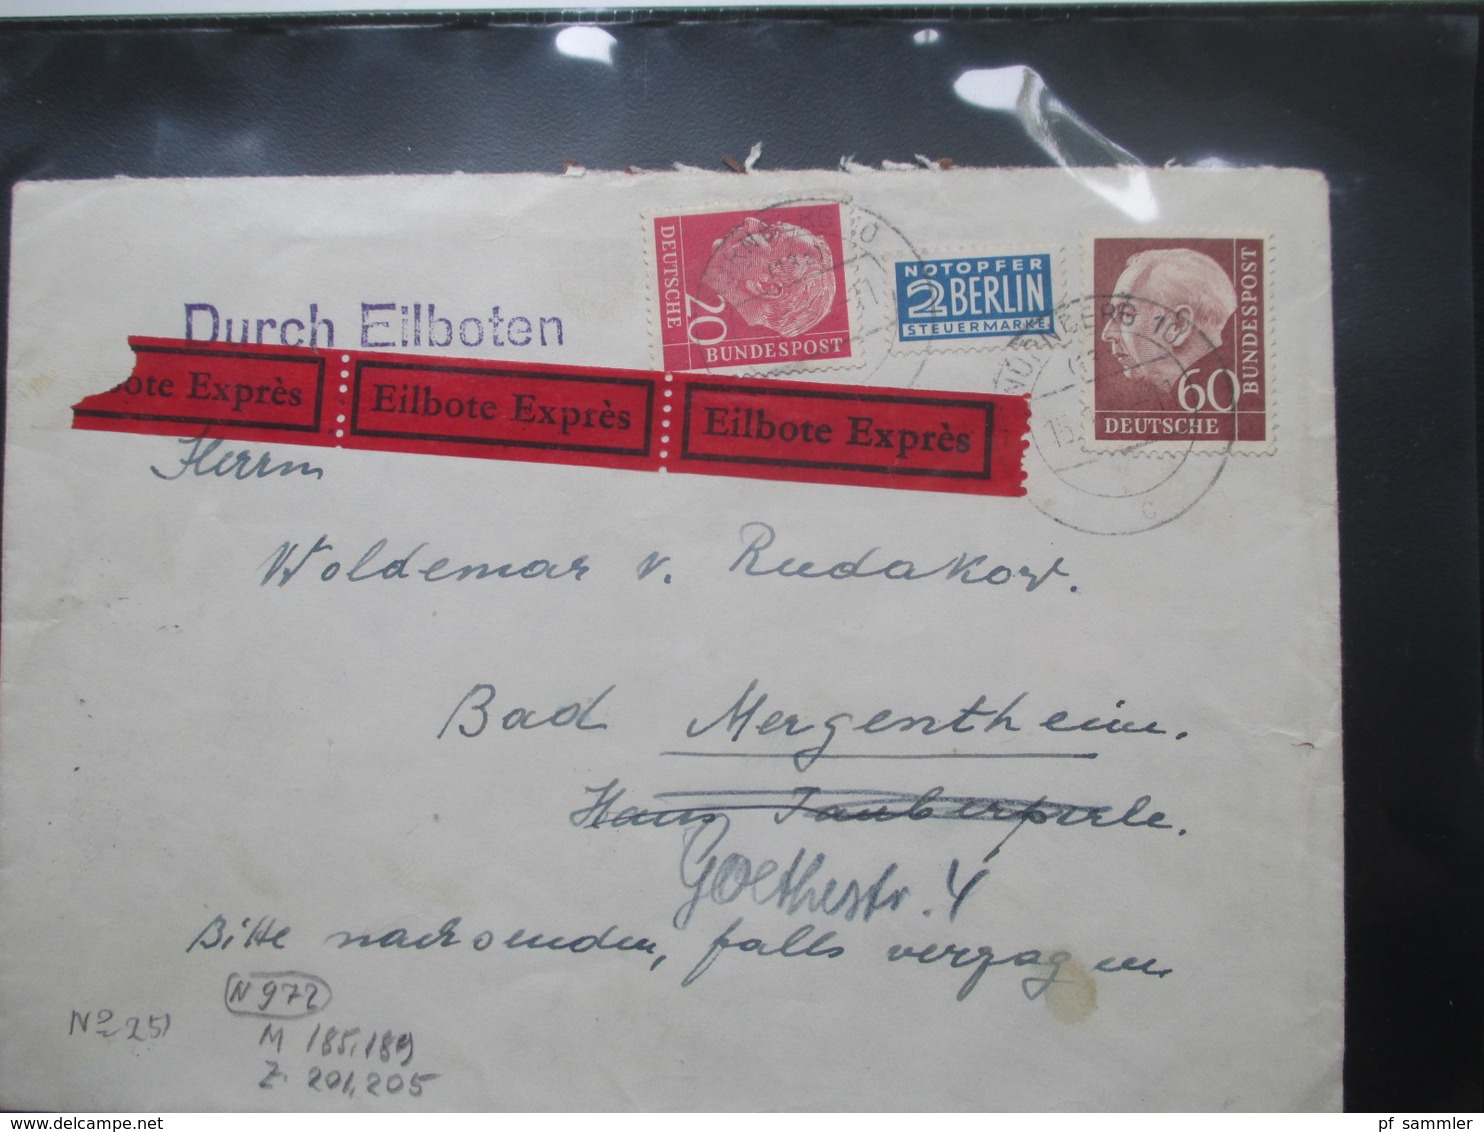 Durch Eilboten
DEUTSCHE
20
BUNDESPOST
NOTOPFER
2 BERLIN
STEUERMARKE
NÜRNBERG 10
c
BUNDESPOST
60
DEUTSCHE
bote Exprès
Eilbote Exprès
Eilbote Exprès
Herrn
Woldemar v. Rudakow.
Bad Mergentheim.
Haus Tauberperle.
Goethestr. 4
Bitte nachsenden, falls verzogen
N 972
No 251
M 185,189
Z. 201,205
www.delcampe.net
pf_sammler